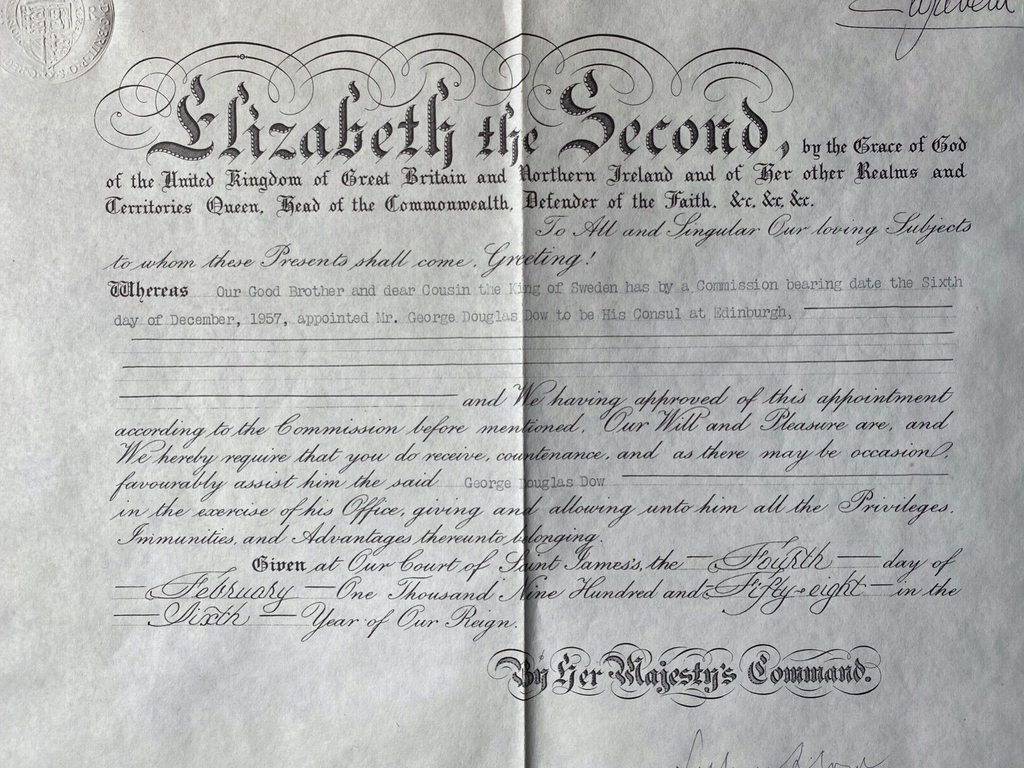 Elizabeth the Second, by the Grace of God
of the United Kingdom of Great Britain and Northern Ireland and of Her other Realms and
Territories Queen, Head of the Commonwealth, Defender of the Faith, &c, &c, &c.
To All and Singular Our loving Subjects
to whom these Presents shall come, Greeting!
Whereas Our Good Brother and dear Cousin the King of Sweden has by a Commission bearing date the Sixth
day of December, 1957, appointed Mr. George Douglas Dow to be His Consul at Edinburgh,
and We having approved of this appointment
according to the Commission before mentioned, Our Will and Pleasure are, and
We hereby require that you do receive, countenance, and as there may be occasion,
favourably assist him the said George Douglas Dow
in the exercise of his Office, giving and allowing unto him all the Privileges,
Immunities, and Advantages thereunto belonging.
Given at Our Court of Saint James's, the Fourth day of
February One Thousand Nine Hundred and Fifty-eight in the
Sixth Year of Our Reign.
By Her Majesty's Command.